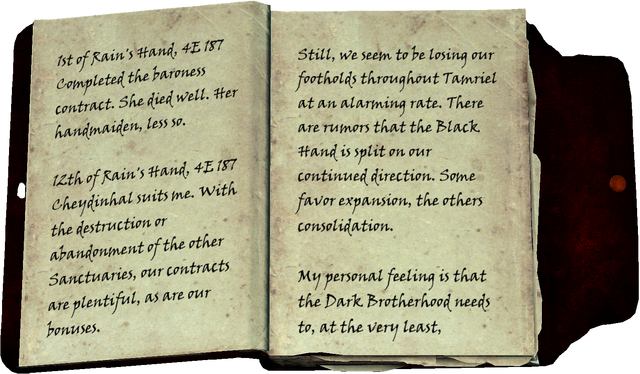 1st of Rain's Hand, 4E 187
Completed the baroness
contract. She died well. Her
handmaiden, less so.
12th of Rain's Hand, 4E 187
Cheydinhal suits me. With
the destruction or
abandonment of the other
Sanctuaries, our contracts
are plentiful, as are our
bonuses.
Still, we seem to be losing our
footholds throughout Tamriel
at an alarming rate. There
are rumors that the Black
Hand is split on our
continued direction. Some
favor expansion, the others
consolidation.
My personal feeling is that
the Dark Brotherhood needs
to, at the very least,